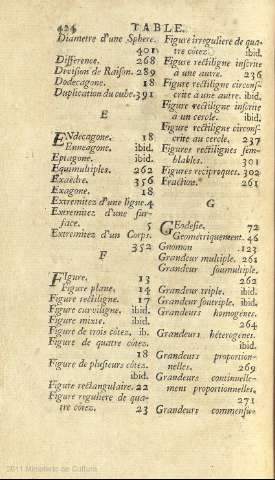 424 TABLE.
Diametre d'une Sphere.
401
Difference. 268
Division de Raison. 289
Dodecagone. 18
Duplication du cube. 391
E
ENdecagone. 18
Enneagone. ibid.
Eptagone. ibid.
Equimultiples. 262
Exaedre. 356
Exagone. 18
Extremitez d'une ligne. 4
Extremitez d'une sur-
face. 5
Extremitez d'un Corps.
352
F
FIgure. 13
Figure plane. 14
Figure rectiligne. 17
Figure curviligne. ibid.
Figure mixte. ibid.
Figure de trois côtez. ib.
Figure de quatre côtez.
18
Figure de plusieurs côtez.
ibid.
Figure rectangulaire. 22
Figure reguliere de qua-
tre côtez. 23
Figure irreguliere de qua-
tre côtez. ibid.
Figure rectiligne inscrite
a une autre. 236
Figure rectiligne circonf-
crite a une autre. ibid.
Figure rectiligne inscrite
a un cercle. ibid.
Figure rectiligne circonf-
crite au cercle. 237
Figures rectilignes sem-
blables. 301
Figures reciproques. 302
Fraction. 261
G
GEodesie. 72
Geometriquement. 46
Gnomon .123
Grandeur multiple. 261
Grandeur soumultiple.
262
Grandeur triple. ibid.
Grandeur soutriple. ibid.
Grandeurs homogenes.
264
Grandeurs heterogenes.
ibid.
Grandeurs proportion-
nelles. 269
Grandeurs continuelle-
ment proportionnelles.
271
Grandeurs commensu-
2011 Ministerio de Cultura